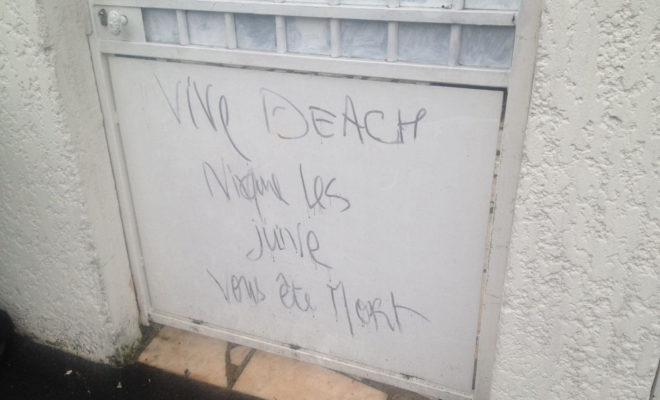 Vive DEACH
Nique les
juive
Vous ête Mort